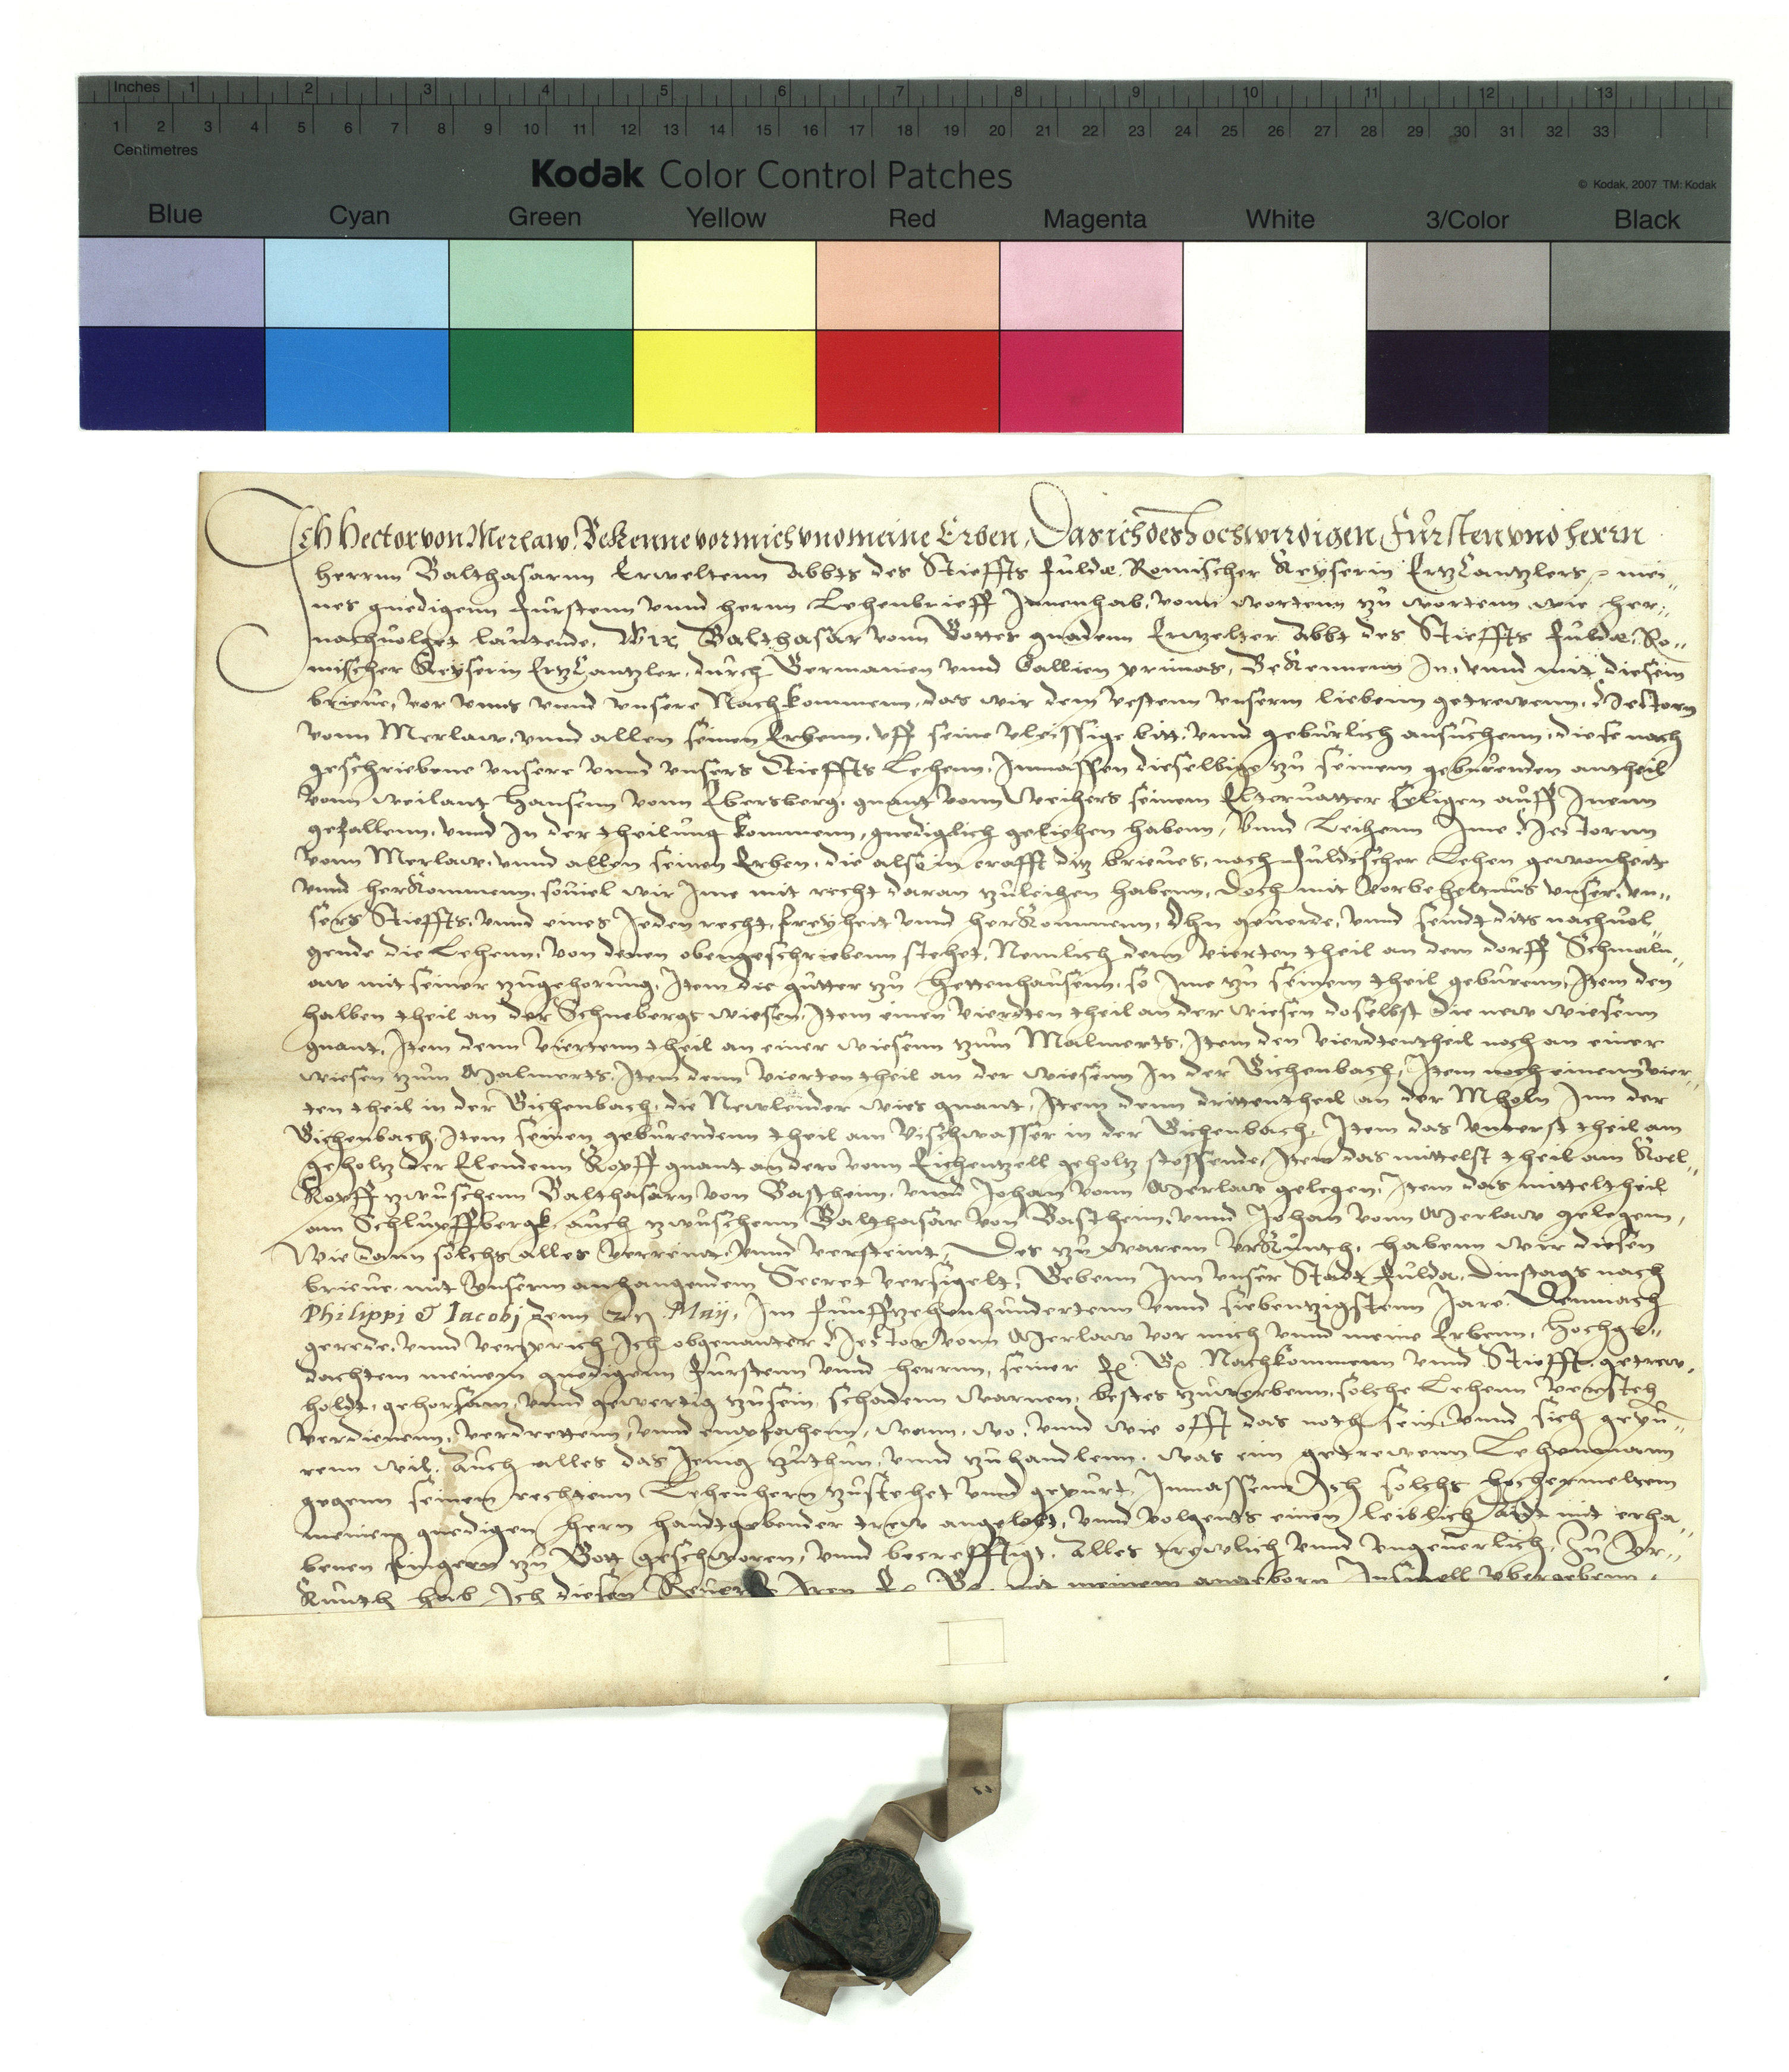 Inches 1 2 3 4 5 6 7 8 9 10 11 12 13
1 2 3 4 5 6 7 8 9 10 11 12 13 14 15 16 17 18 19 20 21 22 23 24 25 26 27 28 29 30 31 32 33
Centimetres
Kodak Color Control Patches
© Kodak, 2007 TM: Kodak
Blue Cyan Green Yellow Red Magenta White 3/Color Black
Ich Hector von Merlaw, Bekenne vor mich vnd meine Erben, Das ich des Hochwirdigen Fürsten vnd Herrn
Herrnn Balthasarnn Erweltenn Abbts des Stieffts Fulda, Romischer Keyserin ErtzCantzlers, mei„
nes gnedigenn Fürstenn vnnd hernn Lehenbrieff Innenhab, vonn wortenn zu wortenn, wie her„
nachuolget lautende. Wir Balthasar vonn Gottes gnadenn Erwelter Abbt des Stieffts Fulda, Ro„
mischer Keyserin ErtzCantzler, durch Germanien vnnd Gallien primas, Bekennenn In, vnnd mit diesem
brieue, vor vnns vnnd vnsere Nachkommenn, das wir dem vestenn vnserm liebenn getrewenn, Hectorn
vonn Merlaw, vnnd allen seinen Erbenn, vff seine vleissige bitt, vnnd geburlich ansuchenn, diese nach
geschriebene vnsere vnnd vnsers Stieffts Lehenn, Inmassen dieselbige zu seinem geburenden antheil
vonn weilant Hansenn vonn Ebersberg, gnant vonn Weihers seinem Eltervatter Seligen auff Inenn
gefallenn, vnnd In der theilung kommenn, gnediglich geliehen habenn, Vnnd Leihenn Ime Hectornn
vonn Merlaw, vnnd allen seinen Erben, die also in crafft ditz brieues, nach Fuldischer Lehen gewonheit
vnnd herkommenn, souiel wir Ime mit recht daran zuleihen habenn, Doch mit vorbeheltnus vnser, vn„
sers Stieffts, vnnd eines Jeden recht, freyheit vnnd herkommenn, Ohn geuerde, vnnd seindt dits nachuol„
gende die Lehenn, von denen obengeschriebenn stehet, Nemlich denn vierten theil an dem dorff Schmaln„
aw mit seiner zugehorung, Item die gutter zu Hettenhausenn, so Ime zu seinem theil geburenn, Item den
halben theil an der Schnebergs wiesen, Item einen vierdten theil an der wiesen doselbst die new wiesenn
gnant, Item denn viertenn theil an einer wiesenn zum Malmerts, Item den vierdtentheil noch an einer
wiesen zum Malmerts, Item denn vierten theil an der wiesenn In der Gichenbach, Item noch einenn vier„
ten theil in der Gichenbach, die Newlender wies gnant, Item denn drittentheil an der Mholn Inn der
Gichenbach, Item seinen geburendenn theil am vischwasser in der Gichenbach, Item das vnterst theil am
geholtz der Elendenn Kopff gnant an dero vonn Eichentzell geholtz stossende, Item das mittelst theil am Koel„
Kopff zwuschenn Balthasarn von Bastheim, vnnd Johan vonn Merlaw gelegen, Item das mitteltheil
am Schlupffbergk, auch zwuschenn Balthasar von Bastheim, vnnd Johan vonn Merlaw gelegenn,
Wie dann solchs alles verreint, vnnd versteint, Des zu warem vrkunth, habenn wir diesen
brieue, mit vnserm anhangendem Secret versigelt, Gebenn Inn vnser Stadt Fulda, Dinstags nach
Philippi & Iacobj denn Maij, Im Funffzehenhundertenn vnnd siebentzigstenn Jare. Demnach
gerede, vnnd versprich Ich obgenanter Hector vonn Merlaw vor mich vnnd meine Erbenn, Hochge„
dachtem meinem gnedigenn Fürstenn vnnd herrnn, seiner Nachkommenn vnnd Stiefft, getrew,
holdt, gehorsam, vnnd gewertig zusein, schadenn warnen, bestes zuwerbenn, solche Lehenn
verdienenn, verdrettenn, vnnd enpfahenn, wann, wo, vnnd wie offt das noth sein, vnnd sich gepu„
renn wil, Auch alles das Jenig zuthun, vnnd zuhandlenn, was einn getrewenn Lehenmann
gegenn seinem rechtenn Lehenhern zustehet vnnd gepurt, Inmassenn Ich solchs hochermeltem
meinem gnedigen hern handtgebender trew angelobt, vnnd volgents einen leiblich Aidt mit erha„
benen fingern zu Gott geschworen, vnnd becrefftigt, Alles trewlich vnnd vngeuerlich, Zu Vr„
kunth hab Ich diesen Reuers Iren mit meinem angeborn Insigell vbergebenn,